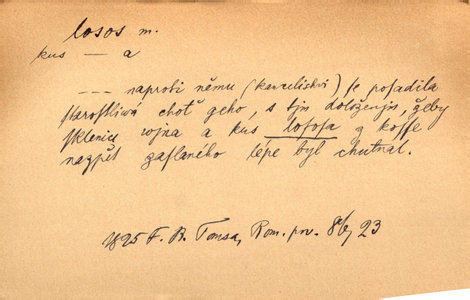 losos m.
kus — a
--- naproti němu (kavalírství) se posadila
starostliwá choť geho, s tjm doloženjm, žeby
sklenice wjna a kus lososa z koffe
nazpět zaslaného lépe byl chutnal.
1825 F. B. Tomsa, Rom. pov. 8b, 23